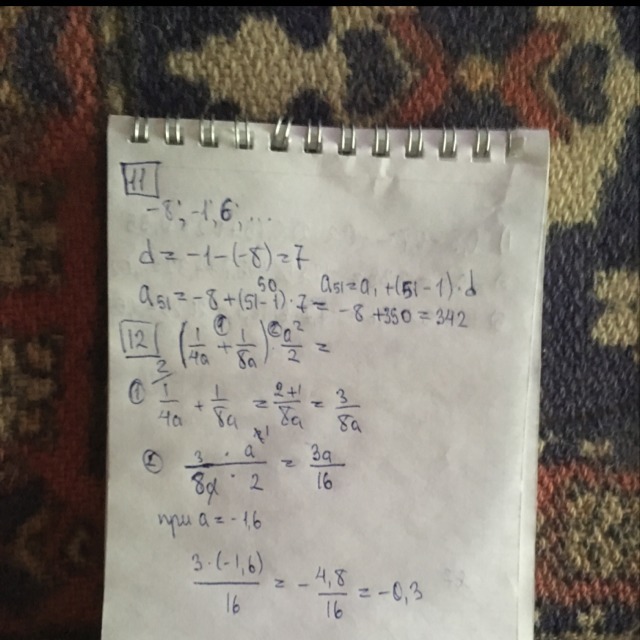 11
-8; -1; 6; ...
d = -1 - (-8) = 7
a₅₁ = a₁ + (51 - 1) · d
a₅₁ = -8 + (51-1) · 7 = -8 + 350 = 342
50
12 (1/4a + 1/8a) · a²/2 =
① 1/4a + 1/8a = 2+1/8a = 3/8a
② 3 · a²/8a · 2 = 3a/16
при a = -1,6
3 · (-1,6)/16 = - 4,8/16 = -0,3